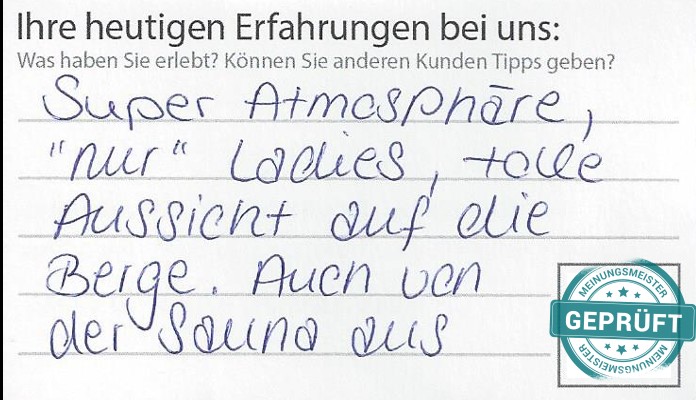 Ihre heutigen Erfahrungen bei uns:
Was haben Sie erlebt? Können Sie anderen Kunden Tipps geben?
Super Atmosphäre,
"nur" Ladies, tolle
Aussicht auf die
Berge. Auch von
der Sauna aus
MEINUNGSMEISTER
GEPRÜFT
MEINUNGSMEISTER